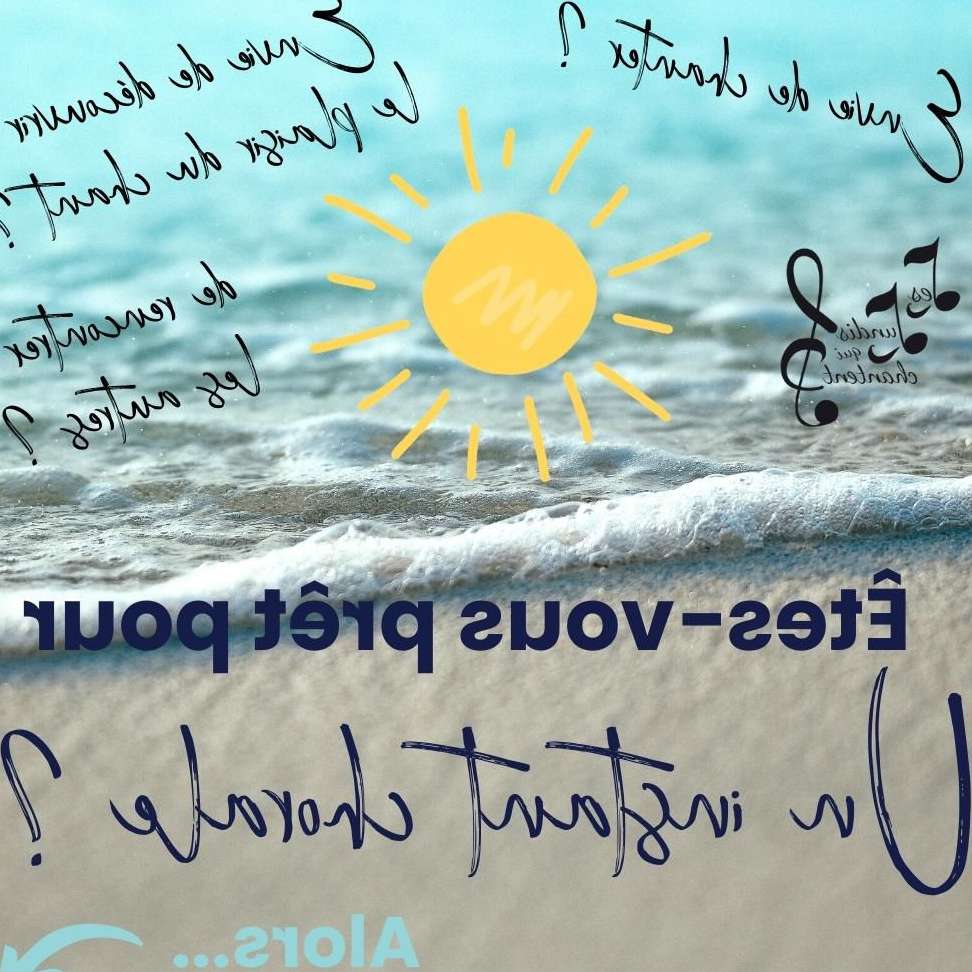 Envie de chanter ?
Envie de découvrir
le plaisir du chant ?
de rencontrer
les autres ?
Les
Lundis
qui
chantent
Êtes-vous prêt pour
Un instant chorale ?
Alors...